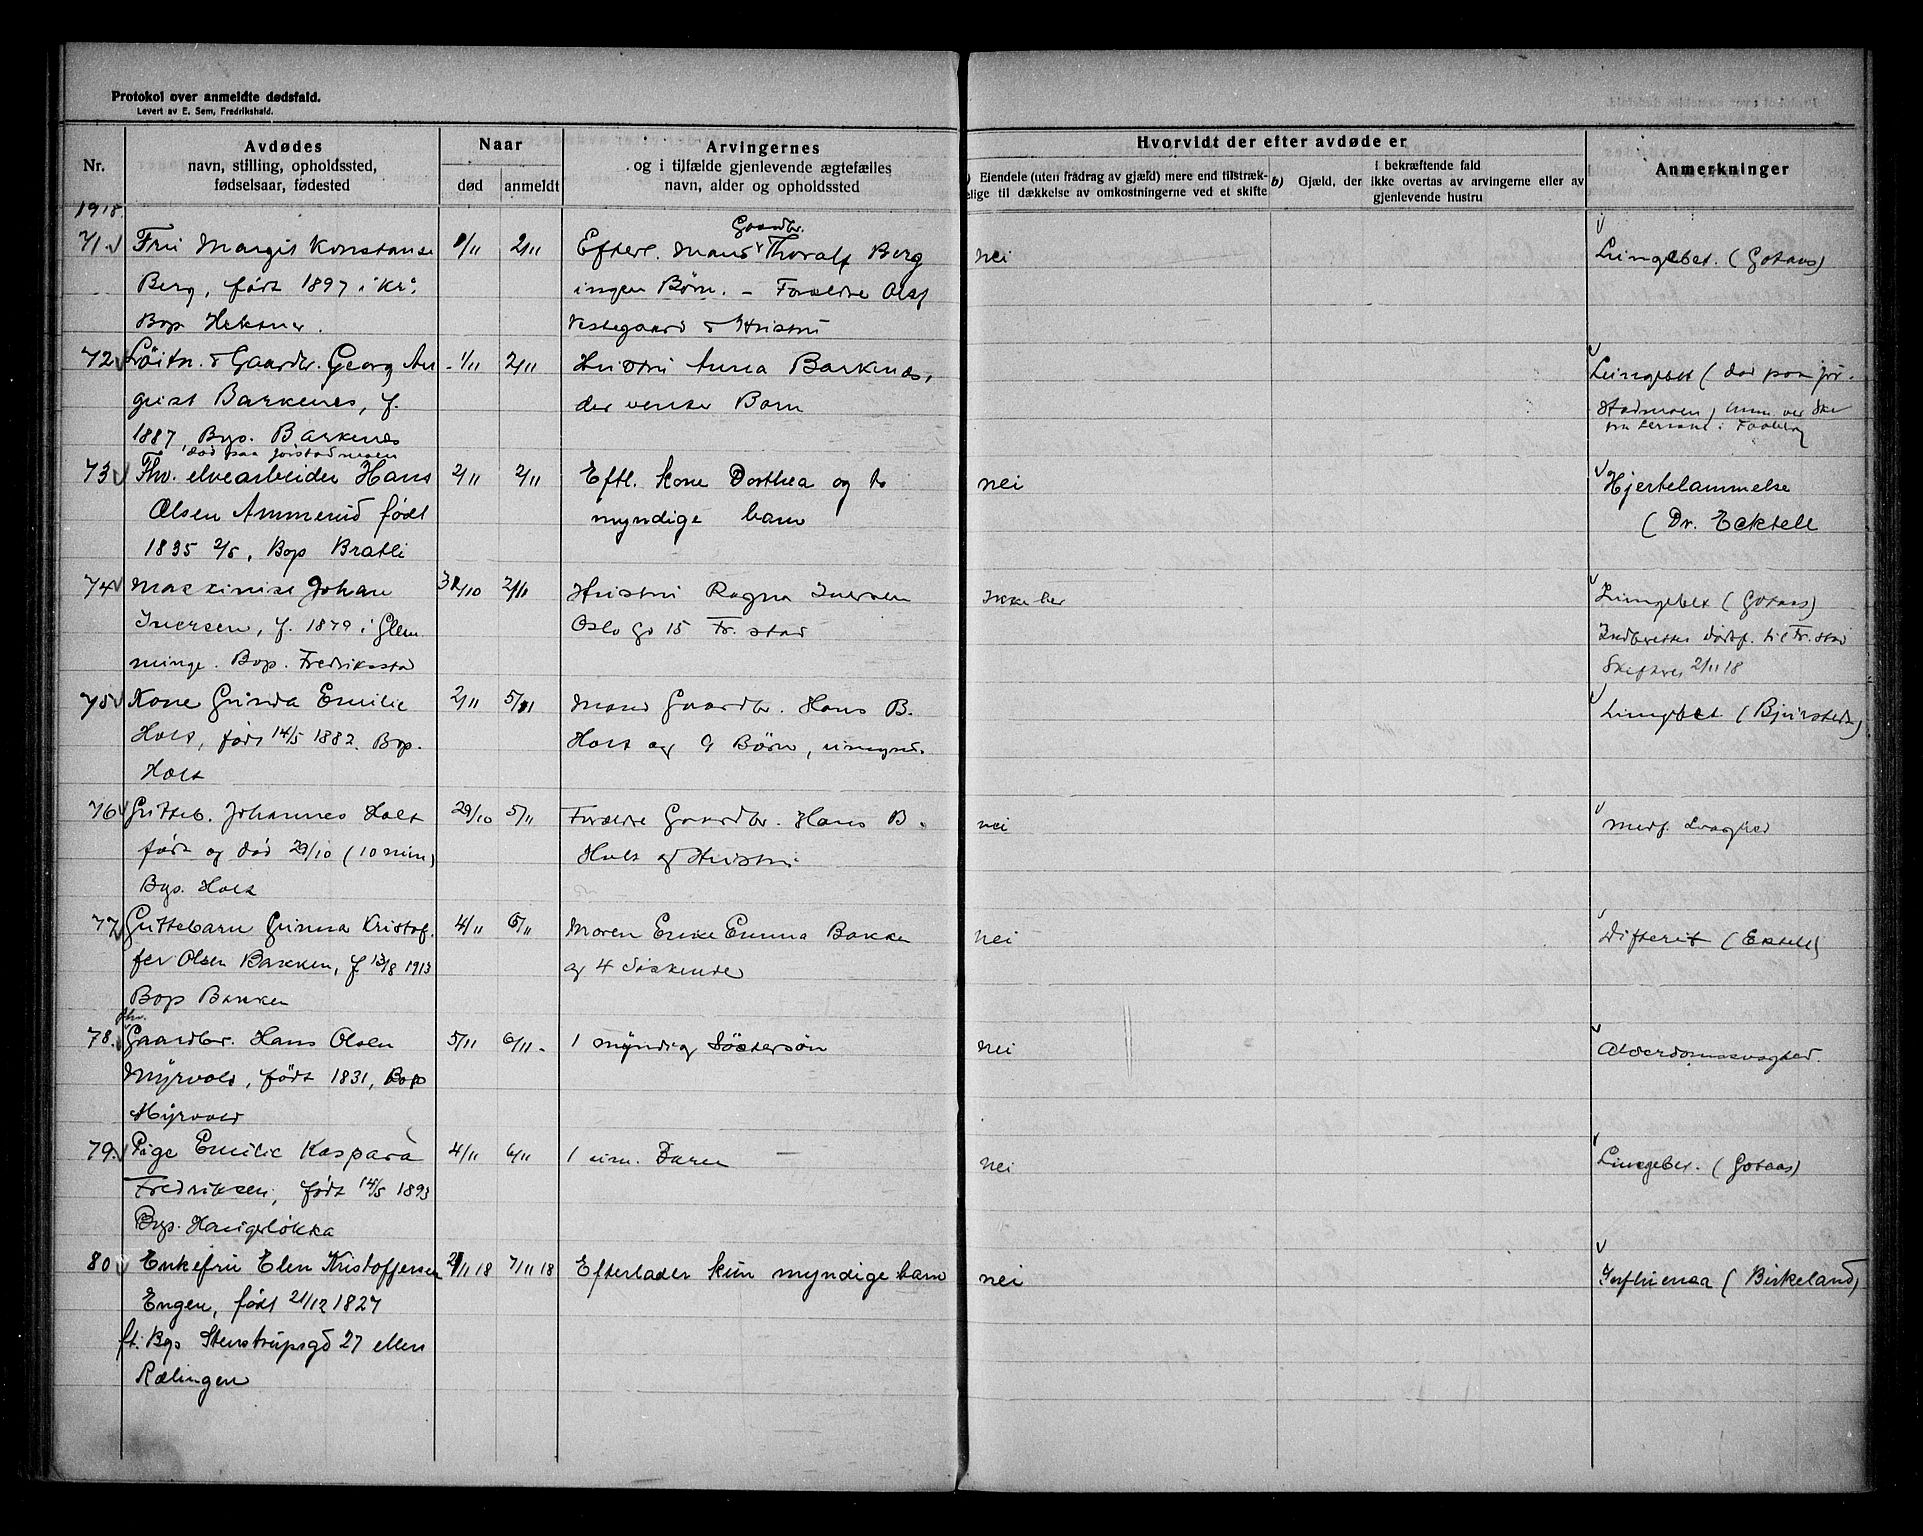 Protokol over anmeldte dødsfald.
Levert av E. Sem, Fredrikshald.
Nr.
Avdødes
navn, stilling, opholdssted,
fødselsaar, fødested
Naar
død
anmeldt
Arvingernes
og i tilfælde gjenlevende ægtefælles
navn, alder og opholdssted
Hvorvidt der efter avdøde er
Eiendele (uten fradrag av gjæld) mere end tilstræk-
elige til dækkelse av omkostningerne ved et skifte
b) Gjæld, der
i bekræftende fald
ikke overtas av arvingerne eller av
gjenlevende hustru
Anmerkninger
1918
71. Fru Margit Konstanse
Berg, født 1897 i Kr.
Bop Heksner.
1/11
2/11
Gaardbr.
Efterl. Mand Thoralf Berg
ingen Børn. – Forældre Olaf
Vestegaard & Hustru
nei
Lungebet. (Gotaas)
72 Løitn. & Gaardbr. Georg Au
gust Barkenes, f.
1887, Bop. Barkenes
død paa Jørstadmoen
1/11
2/11
Hustru Anna Barknes,
der venter Barn
Lungebet (død paa Jør-
stadmoen,
73 Fhv. elvearbeider Hans
Olsen Ammerud født
1835 2/5, Bop Bratli
2/11
2/11
Eftl. kone Dorthea og to
myndige barn
nei
Hjertelammelse
(Dr. Ecktell
74 Maskinist Johan
Iversen, f. 1879 i Glem
minge. Bop. Fredrikstad
31/10
2/11
Hustru Ragna Iversen
Oslo Gd 15 Fr.stad
Ikke her
Lungebet (Gotaas)
Indberettet dødsf. til Fr.stad
Skifteret 2/11 18
75 Kone Gunda Emilie
Holt, født 14/5 1882. Bop.
Holt
2/11
5/11
Mand Gaardbr. Hans B.
Holt og 9 Børn, umynd.
Lungebet. (Bjursted)
76 Gutteb. Johannes Holt
født og død 29/10 (10 min)
Bop. Holt
29/10
5/11
Forældre Gaardbr. Hans B.
Holt og Hustru
nei
Medf. Svaghed
77 Guttebarn Gunna Kristof
fer Olsen Bakken, f 13/8 1913
Bop Bakken
4/11
6/11
Moren Enke Emma Bakken
og 4 Søskende
nei
Difterit (Ektell)
fhv.
78. Gaardbr. Hans Olsen
Myrvold, født 1831, Bop
Myrvold
5/11
6/11.
1 myndig Søstersøn
nei
Alderdomssvaghed.
79. Pige Emilie Kaspara
Fredriksen, født 14/5 1893
Bop. Haugeløkka
4/11
6/11
1 um. Barn
nei
Lungebet. (Gotaas)
80 Enkefru Elen Kristoffersen
Engen, født 21/12 1827
ft. Bop Stenstrupsgd 27 ellers
Rælingen
2/11 18
7/11 18
Efterlader kun myndige barn
nei
Influensa (Birkeland)